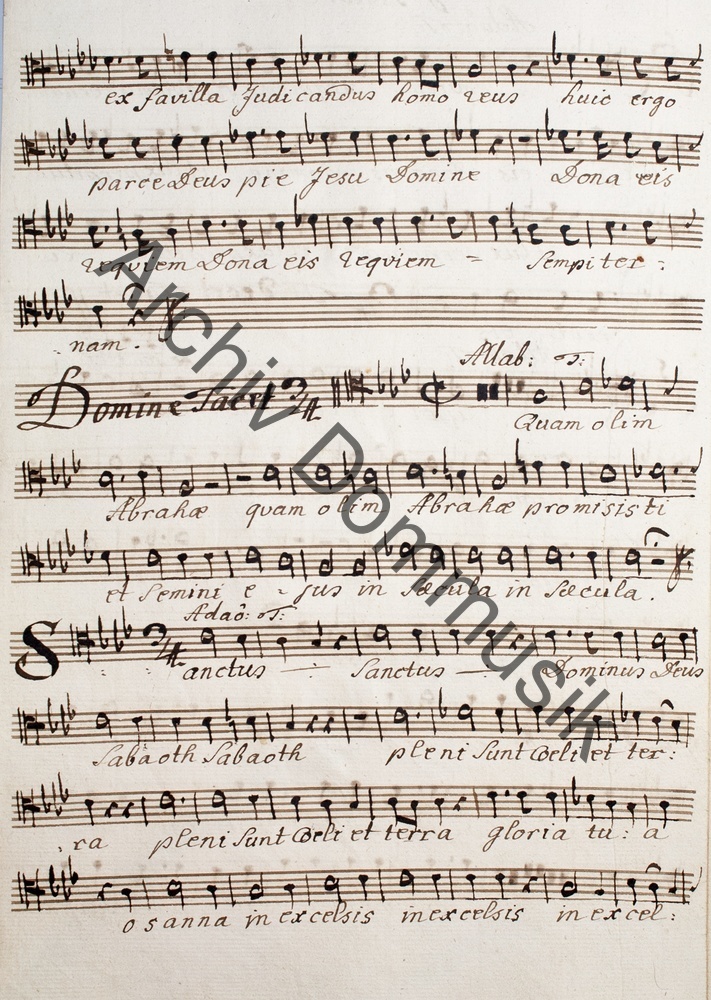 ex favilla Judicandus homo reus huic ergo
parce Deus pie Jesu Domine Dona eis
requiem Dona eis requiem = sempiter:
:nam.
Allab: T:
Domine Tacet 3/4
Quam olim
Abrahæ quam olim Abrahæ promisisti
et Semini e - jus in Sæcula in Sæcula.
Adaō: T:
Sanctus Sanctus Dominus Deus
Sabaoth Sabaoth pleni Sunt Cœli et ter:
:ra pleni Sunt Cœli et terra gloria tu: a
osanna in excelsis in excelsis in excel:
Archiv Dommusik